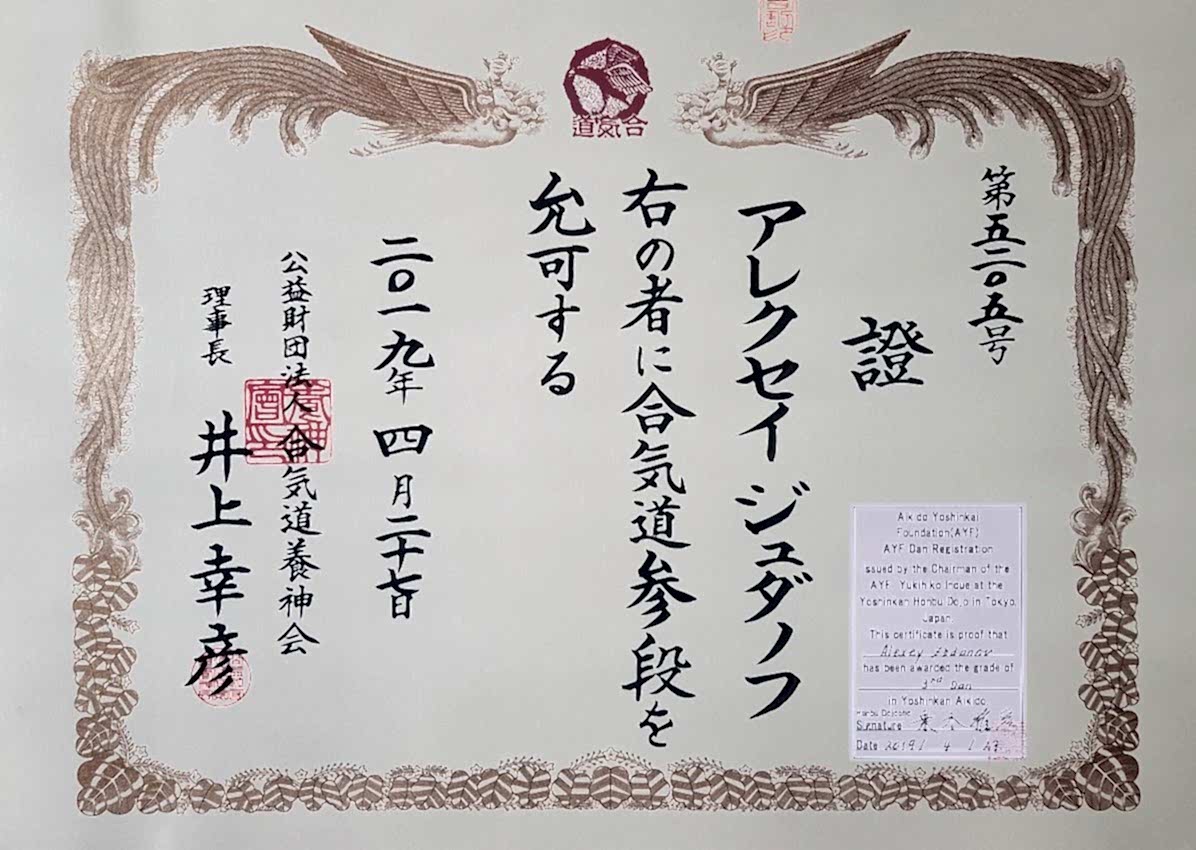 合気道
第五二〇五号
證
アレクセイ ジュダノフ
右の者に合気道参段を
允可する
二〇一九年 四月二十七日
公益財団法人合気道養神会
理事長 井上幸彦
Aikido Yoshinkai
Foundation(AYF)
AYF Dan Registration
issued by the Chairman of the
AYF. Yukihiko Inoue at the
Yoshinkan Honbu Dojo in Tokyo,
Japan.
This certificate is proof that
Alexey Zhdanov
has been awarded the grade of
3rd Dan
in Yoshinkan Aikido
Honbu Dojocho
Signature
Date 2019 / 4 / 27